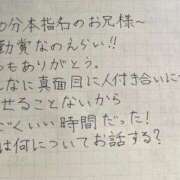 0分本指名のお兄様〜
勤質なのえらい!!
つもありがとう。
んなに真面目に人付き合いに
せることないから
ごくいい時間だった!
は何についてお話する?